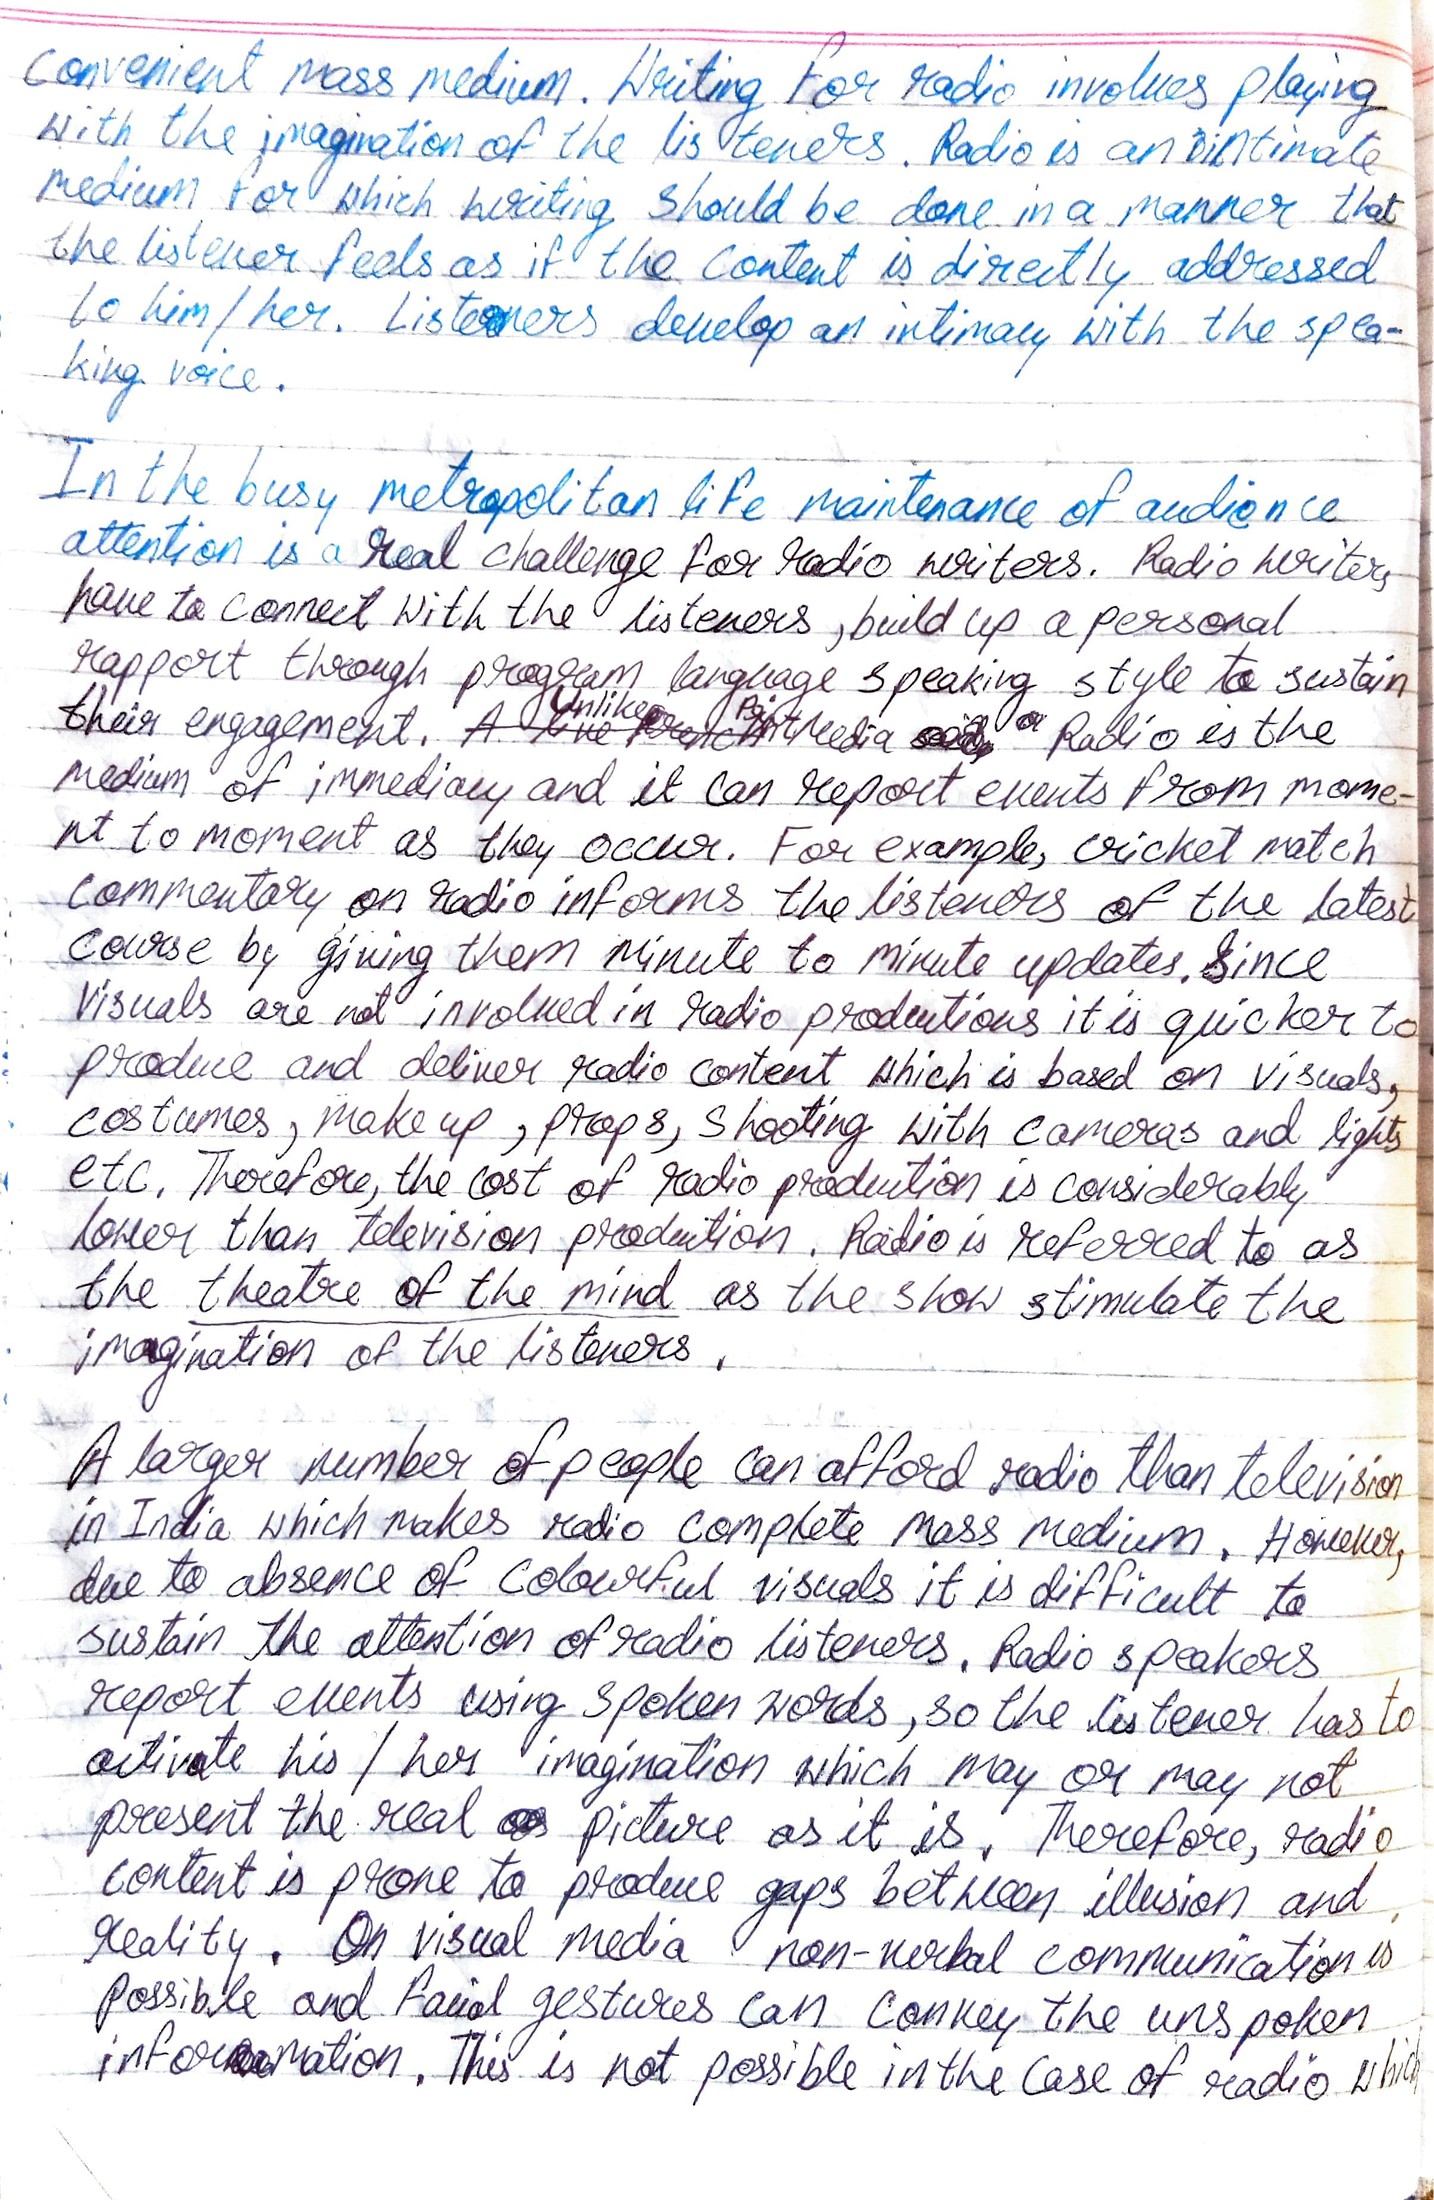 convenient mass medium. Writing for radio involves playing
with the imagination of the listeners. Radio is an intimate
medium for which writing should be done in a manner that
the listener feels as if the content is directly addressed
to him/her. Listeners develop an intimacy with the spea-
king voice.
In the busy metropolitan life maintenance of audience
attention is a real challenge for radio writers. Radio writers
have to connect with the listeners, build up a personal
rapport through program language speaking style to sustain
their engagement. Unlike Print Media Radio is the
medium of immediacy and it can report events from mome-
nt to moment as they occur. For example, cricket match
commentary on radio informs the listeners of the latest
course by giving them minute to minute updates. Since
visuals are not involved in radio productions it is quicker to
produce and deliver radio content which is based on visuals,
costumes, make up, props, shooting with cameras and lights
etc. Therefore, the cost of radio production is considerably
lower than television production. Radio is referred to as
the theatre of the mind as the show stimulate the
imagination of the listeners.
A larger number of people can afford radio than television
in India which makes radio complete mass medium. However,
due to absence of colourful visuals it is difficult to
sustain the attention of radio listeners. Radio speakers
report events using spoken words, so the listener has to
activate his/her imagination which may or may not
present the real picture as it is. Therefore, radio
content is prone to produce gaps between illusion and
reality. On visual media non-verbal communication is
possible and facial gestures can convey the unspoken
information. This is not possible in the case of radio which